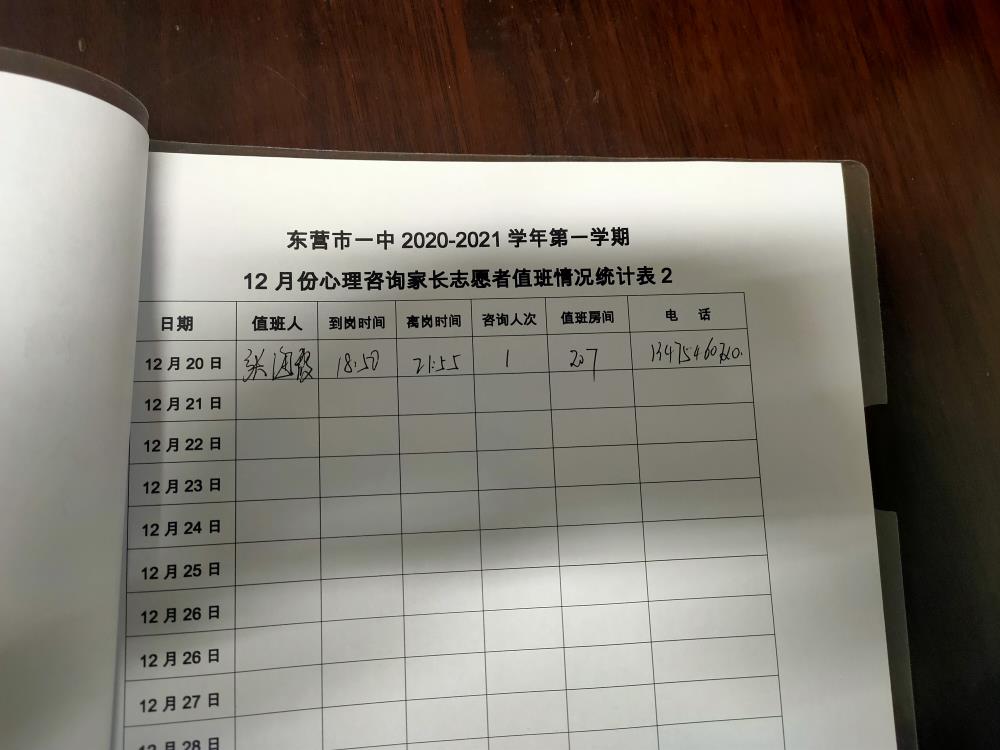 东营市一中 2020-2021 学年第一学期
12 月份心理咨询家长志愿者值班情况统计表 2
日期 值班人 到岗时间 离岗时间 咨询人次 值班房间 电 话
12 月 20 日 18:50 21:55 1 207
12 月 21 日
12 月 22 日
12 月 23 日
12 月 24 日
12 月 25 日
12 月 26 日
12 月 26 日
12 月 27 日
12 月 28 日